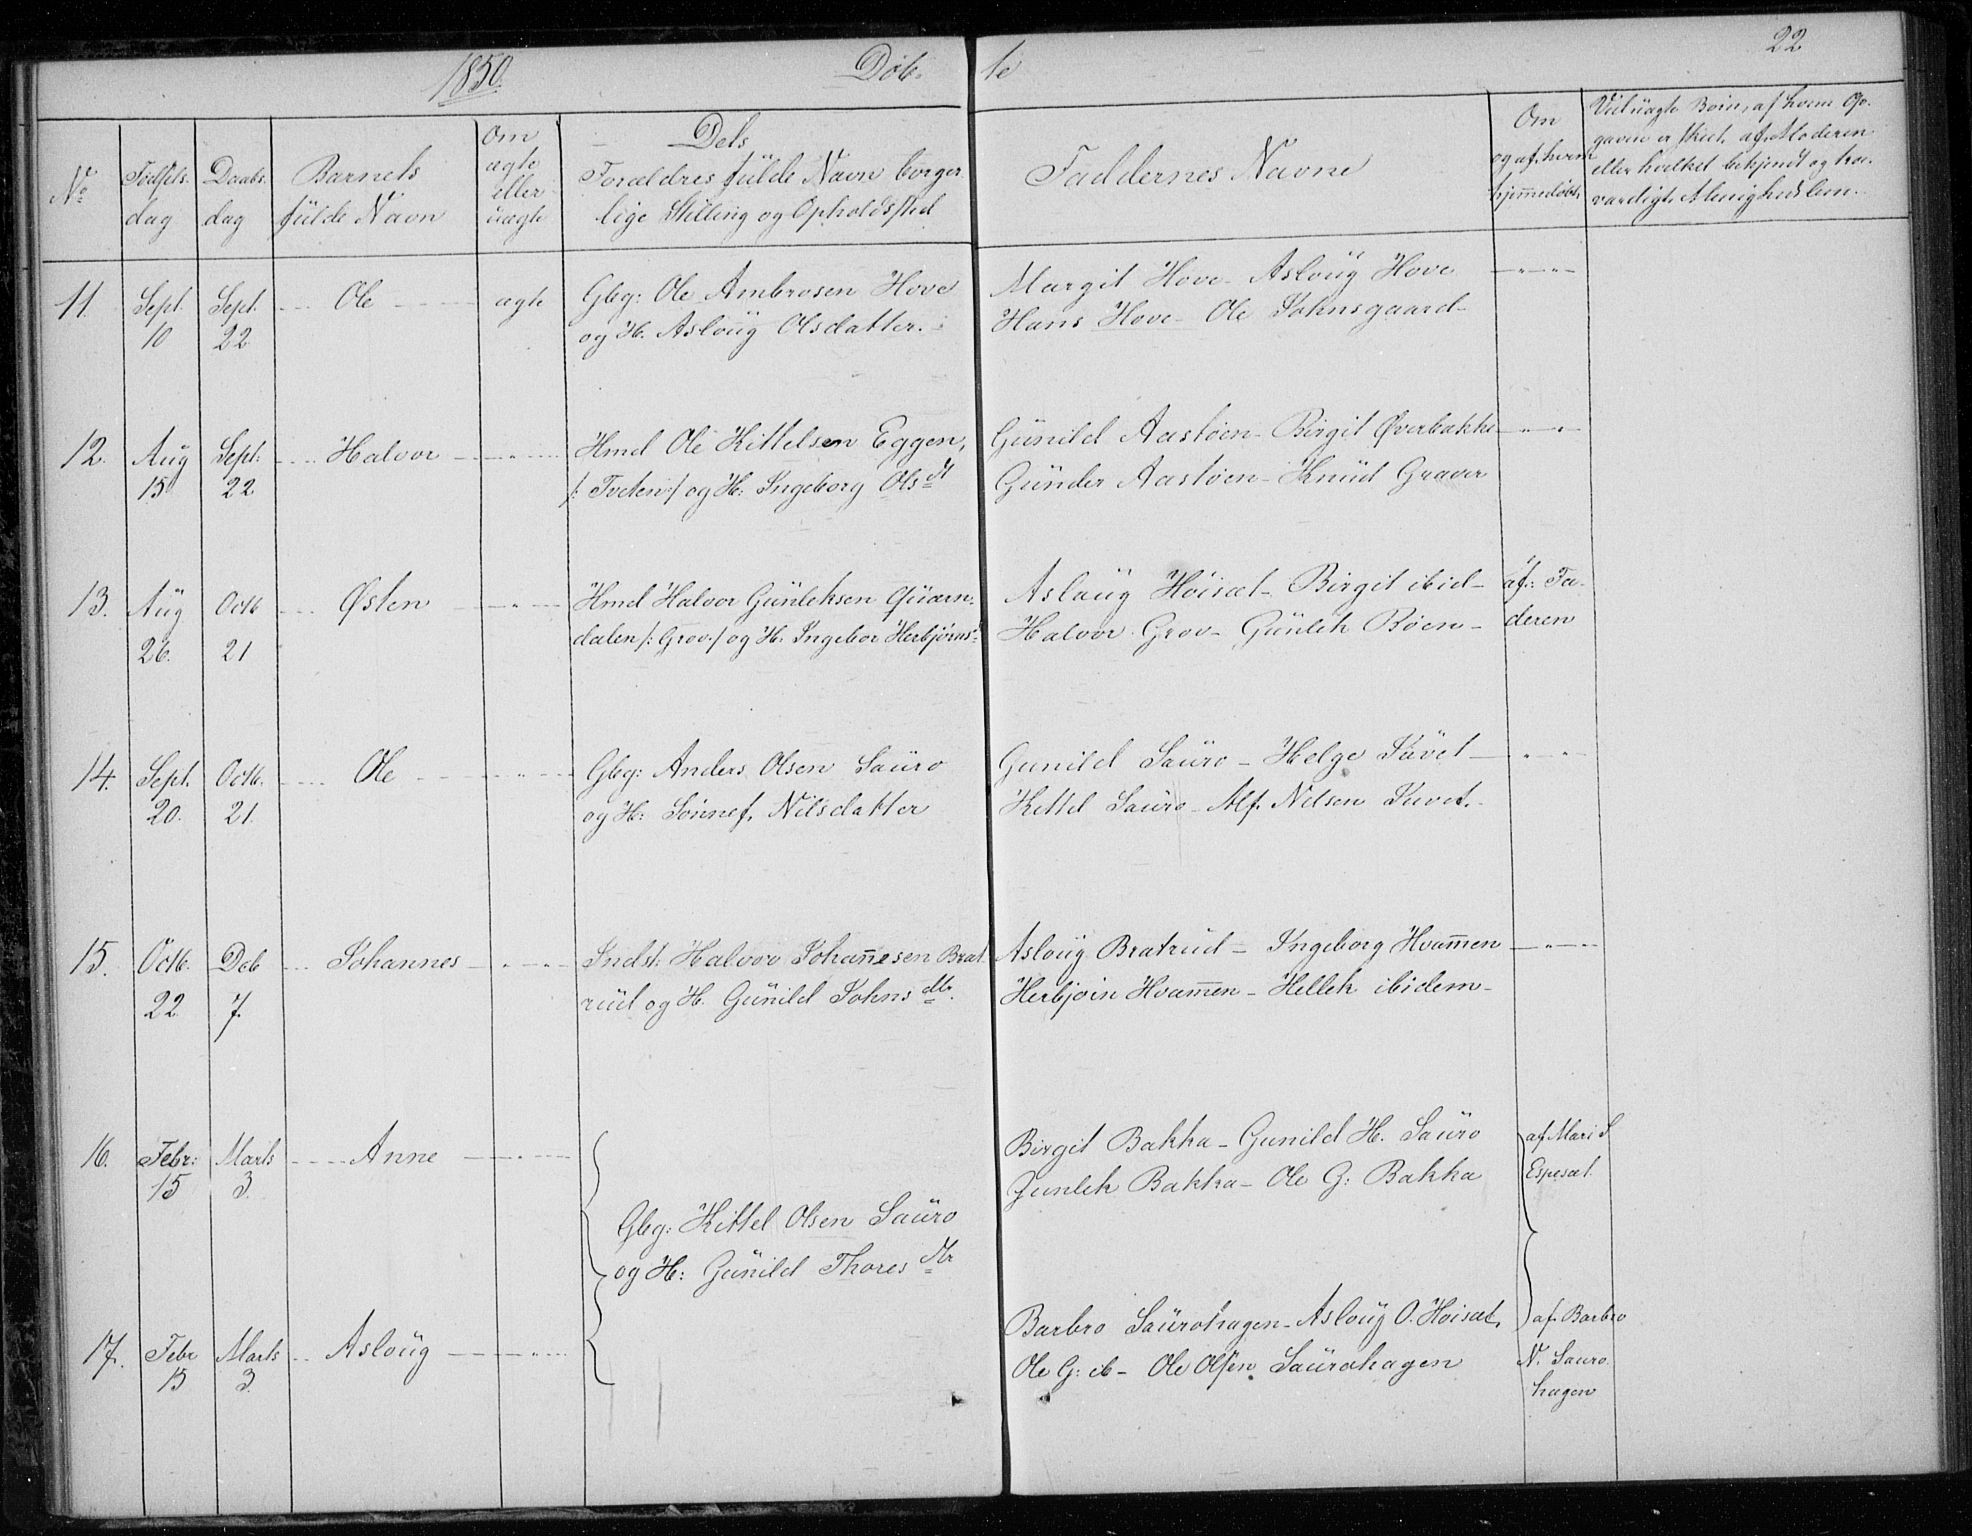 1850. Døb- te 22
No
Fødsels-
dag
Daabs-
dag
Barnets
fulde Navn
Om
ægte
eller
uægte
Dels
Forældres fulde Navn borger-
lige Stilling og Opholdssted
Faddernes Navne
Om
og af hvem
hjemmedøbt.
Ved uægte Børn, af hvem Op-
gaven er skeet, af Moderen
eller hvilket bekjendt og tro-
værdigt Menighedslem.
11. Sept. 10 Sept. 22 Ole ægte Gbg: Ole Ambrosen Hove Margit Hove - Asloug Hove
og H. Asloug Olsdatter. Hans Hove - Ole Johnsgaard -
12. Aug 15 Sept: 22 Halvor Hmd Ole Kittelsen Eggen, Gunild Aastøen - Birgit Øverbakke
/: Tveten/ og H: Ingeborg Olsdt Gunder Aastøen - Knud Graver
13. Aug 26. Octb 21 Østen Hmd Halvor Gunleksen Qværn- Aslaug Høisæt - Birgit ibid - af: Fa-
dalen /: Grov/ og H: Ingebor Herbjørns Halvor Grov - Gunlek Bøen - deren
14. Sept. 20. Octb. 21. Ole Gbg: Anders Olsen Sauro Gunild Sauro - Helge Juvet
og H: Sønnef. Nilsdatter Kittel Sauro - Alf. Nilsen Juvet.
15. Octb. 22 Deb 7. Johannes Indst: Halvor Johanesen Brat- Asloug Bratrud - Ingeborg Hvamen
rud og H. Gunild Johnsdtr. Herbjøin Hvamen - Hellek ibidem -
16. Febr: 15 Marts 3. Anne Birgit Bakka - Gunild H. Sauro af Mari S
Gunlek Bakka - Ole G: Bakka Espesæt
Gbg: Kittel Olsen Sauro
og H: Gunild Thoresdtr
17. Febr 15 Marts 3. Asloug Barbro Saurohagen - Asloug O. Høisæt, af Barbro
Ole G: ib - Ole Olsen Saurohagen N. Sauro-
hagen